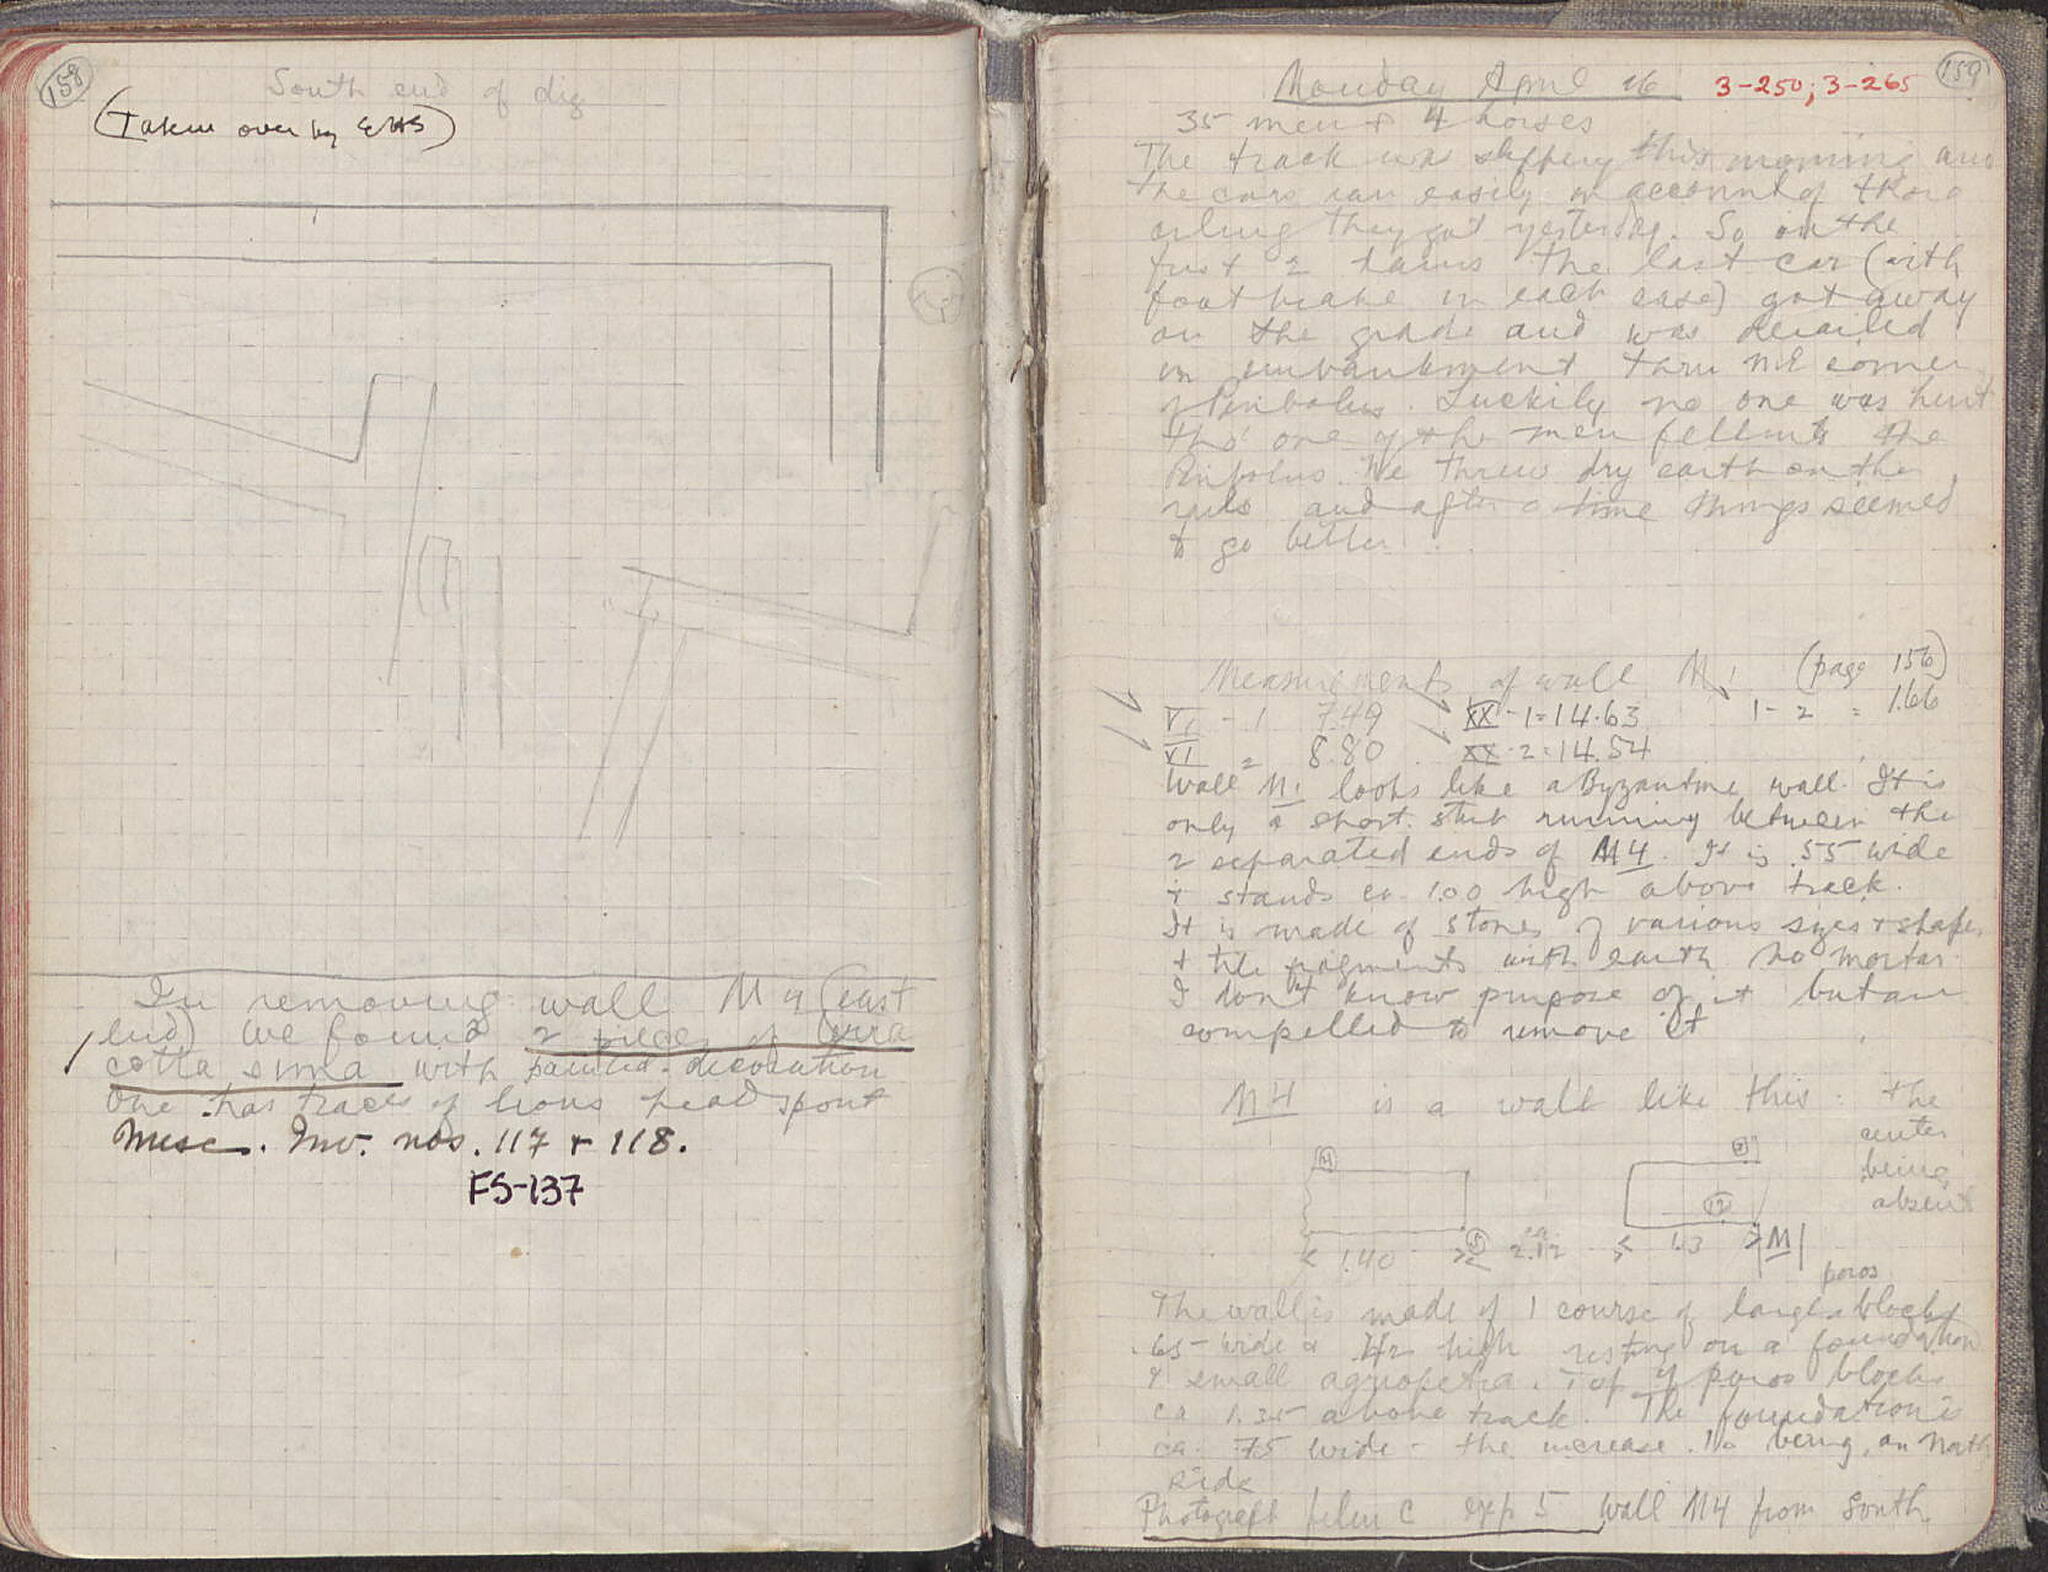 158
South end of dig
(Taken over by EHS)
In removing wall M4 (east
end) we found 2 pieces of terra
cotta sima with painted decoration
One has traces of lions head spout
Misc. Inv. nos. 117 + 118.
FS-137
159
Monday April 16 3-250; 3-265
35 men + 4 horses
The track was slippery this morning and
the cars ran easily on account of
oiling they got yesterday. So on the
first 2 trains the last car (with
foot brake in each case) got away
on the grade and was derailed
on embankment thru NE corner
of Peribolus. Luckily no one was hurt
tho' one of the men fell into the
Peribolus. We threw dry earth on the
rails and after a time things seemed
to go better.
Measurements of wall M1 (page 156)
VI - 1 7.49 XX - 1 = 14.63 1 - 2 = 1.66
VI 2 8.80 XX - 2 = 14.54
Wall M1 looks like a Byzantine wall. It is
only a short stub running between the
2 separated ends of M4. It is .55 wide
+ stands ca. 1.00 high above track.
It is made of stones of various sizes + shapes
+ tile fragments with earth no mortar.
I don't know purpose of it but am
compelled to remove it
M4 is a wall like this: the
center
being
absent
11
12
5
< 1.40 > < ca. 2.12 < 1.3 > M1
poros
The wall is made of 1 course of large blocks
.65 wide + high resting on a foundation
of small agropetra. Top of poros blocks
ca 1.35 above track. The foundation is
ca. .75 wide - the increase .10 being on North
side
Photograph film C exp 5 wall M4 from South.